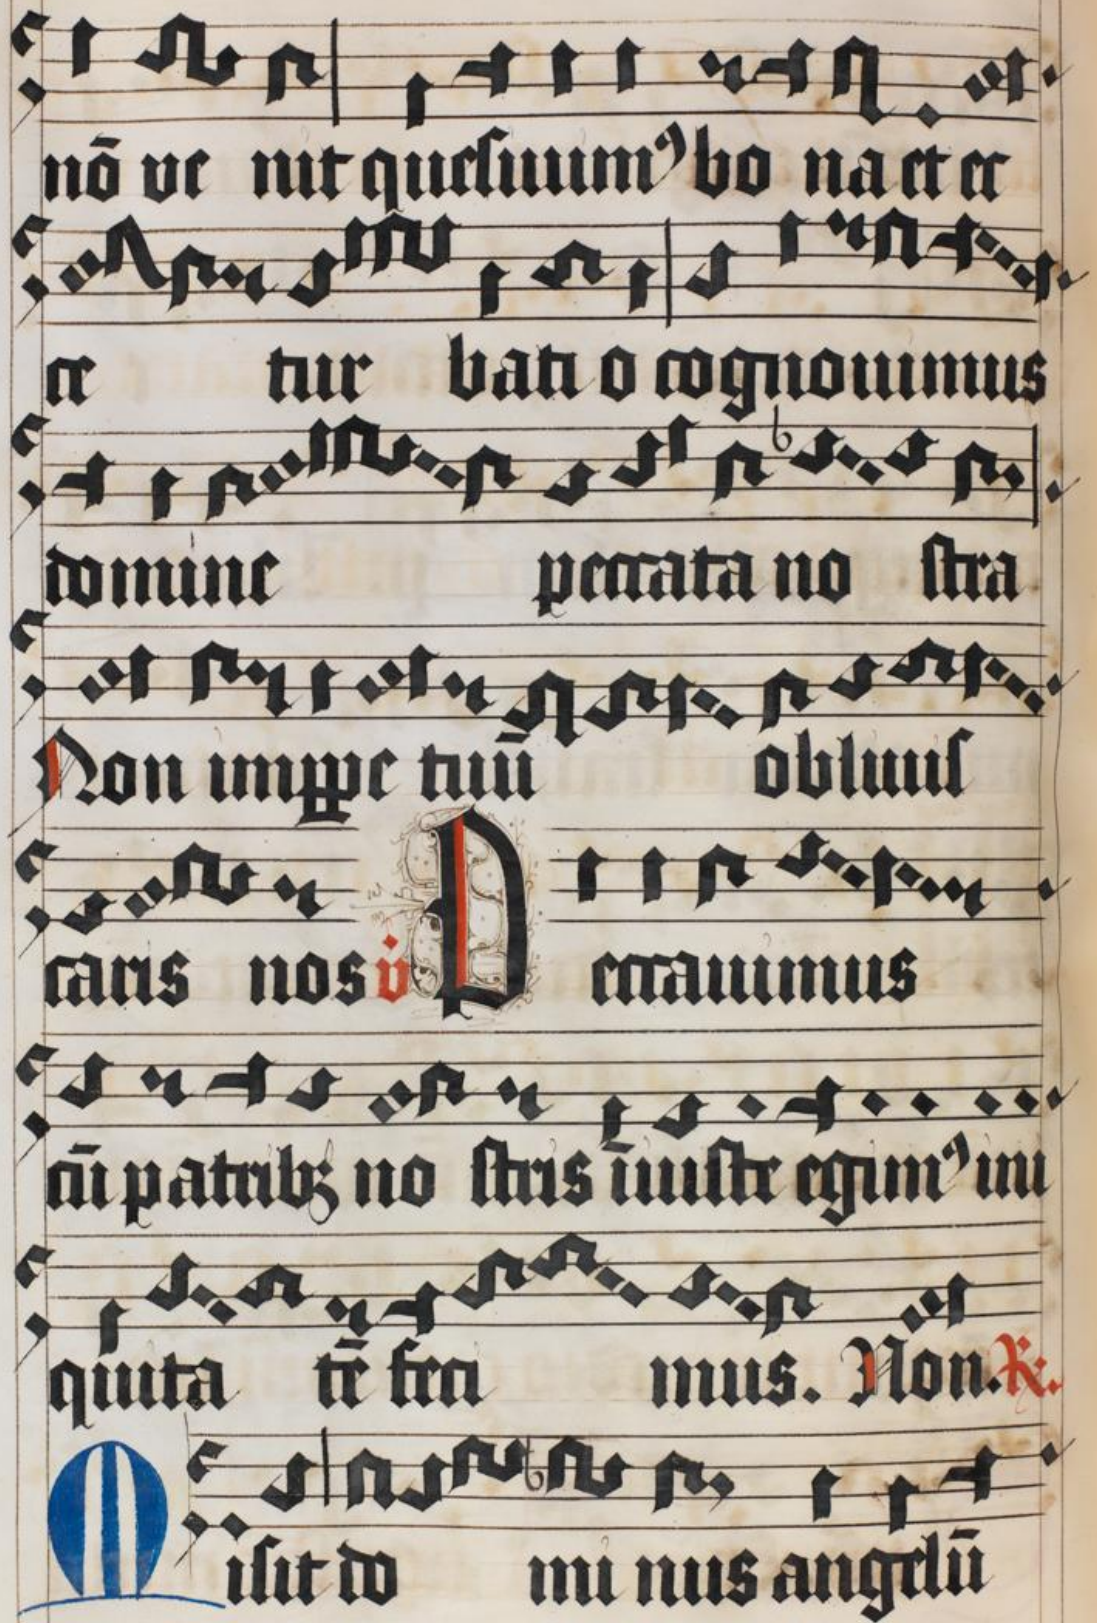 nō ve nit quesiuimꝰ bo na et ec
ce tur bati o cognouimus
domine peccata no stra
Non imꝑpe tuū obliuis
caris nos v̇ P eccauimus
cū patribꝫ no stris iniuste egimꝰ ini
quita tē feci mus. Non. ℟.
M isit do mi nus angelū